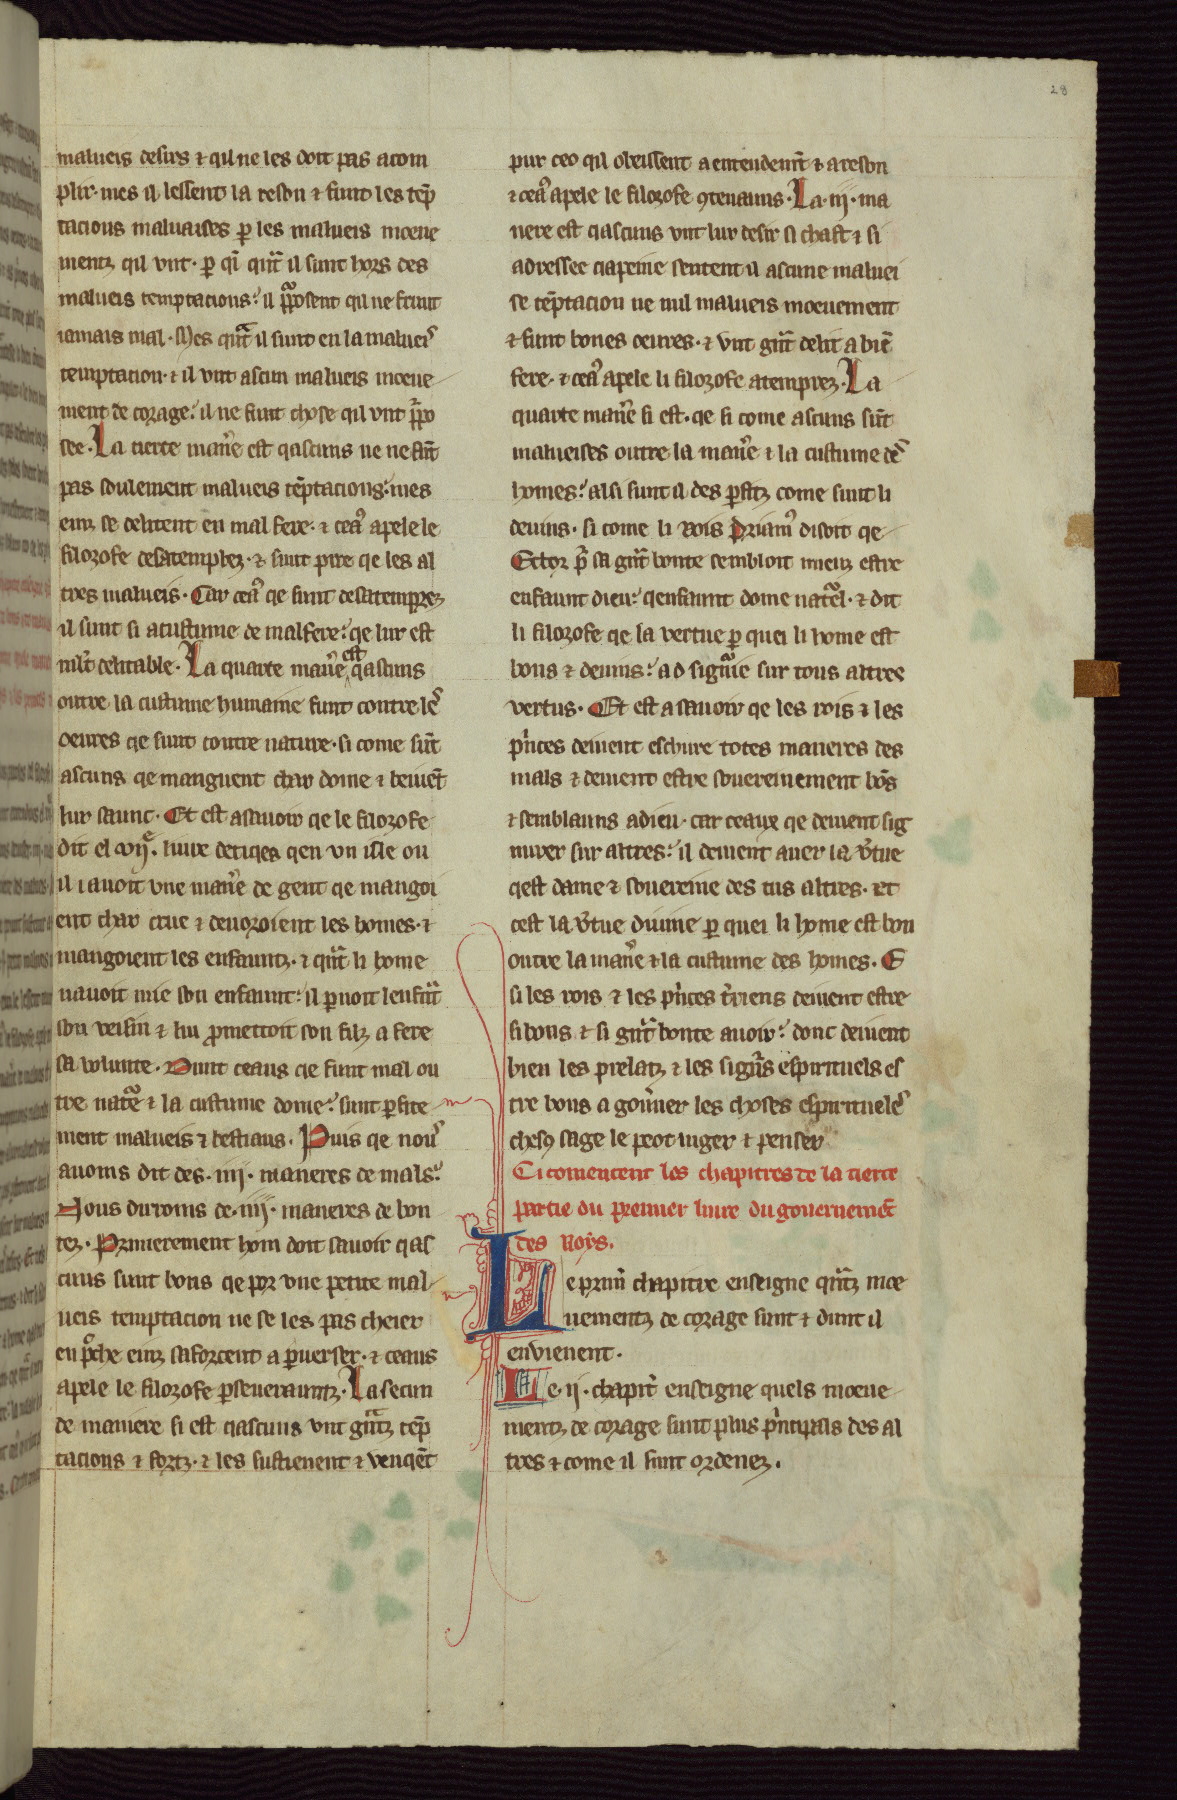 28
malueis desirs ⁊ qil ne les doit pas acom
plir. mes il lessent la reson ⁊ funt les tēp
tacions maluaises ꝑ les malueis moeue
mentz qil vnt. ꝑ qi qnt il sunt hors des
malueis temptacions: il pposent qil ne frunt
iamais mal. Mes qnt il sunt en la maluei
temptacion. ⁊ il vnt ascun malueis moeue
ment de corage: il ne funt chose qil vnt ppo
see. La tierce mane est qascuns ne ne sūt
pas soulement malueis tēptacions. mes
einz se delitent en mal fere. ⁊ cea apele le
filozofe desatemprez. ⁊ sunt pire qe les al
tres malueis. Car cea qe sunt desatemprez
il sunt si acustume de mal fere: qe lur est
mlt delitable. La quarte mane est qascuns
outre la custume humaine funt contre le
oeures qe sunt contre nature. si come sūt
ascuns qe manguent char dome ⁊ beiuēt
lur saunc. Et est asauoir qe le filozofe
dit el vij. liure detiqes qen vn isle ou
il i auoit vne mane de gent qe mangoi
ent char crue ⁊ deuoroient les homes. ⁊
mangoient les enfauntz. ⁊ qnt li home
nauoit mie son enfaunt: il pnoit lenfūt
son veisin ⁊ lui ꝓmettoit son filz a fere
sa volunte. Dunt ceaus qe funt mal ou
tre nate ⁊ la custume dome: sunt ꝑfite
ment malueis ⁊ bestiaus. Puis qe nou
auoms dit des. iiij. maneres de mals:
Nous dirroms de. iiij. maneres de bon
tez. Primerement hom doit sauoir qas
cuns sunt bons qe por vne petite mal
ueis temptacion ne se les pas cheier
en pche einz saforcent a ꝑuerser. ⁊ ceaus
apele le filozofe ꝑseuerauntz. La secun
de maniere si est qascuns vnt gntz tēp
tacions ⁊ fortz. ⁊ les sustienent ⁊ venqēt
pur ceo qil obeissent a entendemt ⁊ a reson
⁊ cea apele le filozofe ꝯtenauns. La. iij. ma
nere est qascuns vnt lur desir si chast ⁊ si
adressee qapeine sentent il ascune maluei
se tēptacion ne nul malueis moeuement
⁊ funt bones oeures. ⁊ vnt gnt delit a biē
fere. ⁊ cea apele li filozofe atemprez. La
quarte mane si est. qe si come ascuns sūt
malueises outre la mane ⁊ la custume de
homes: alsi sunt il des ꝑfitz come sunt li
deuins. si come li Rois Priam disoit qe
Ector pr sa gnt bonte sembloit mieuz estre
enfaunt dieu: qenfaunt dome natel. ⁊ dit
li filozofe qe la vertue ꝑ quei li home est
bons ⁊ deuins: ad signie sur tous altres
vertus. Et est asauoir qe les rois ⁊ les
pinces deiuent eschure totes maneres des
mals ⁊ deiuent estre souereinement bōs
⁊ semblauns a dieu. car ceaux qe deiuent sig
nurer sur altres: il deiuent auer la vtue
qest dame ⁊ souereine des tus altres. Et
cest la vtue diuine ꝑ quei li home est bon
outre la mane ⁊ la custume des homes. E
si les rois ⁊ les pinces triens deiuent estre
si bons ⁊ si gnt bonte auoir: donc deiuent
bien les prelatz ⁊ les signs espirituels es
tre bons a gouner les choses espirituele
chesq sage le peot iuger ⁊ penser
Ci comencent les chapitres de la tierce
partie du premier liure du gouernemēt
des Roys.
Le prim chapitre enseigne qntz moe
uementz de corage sunt ⁊ dunt il
envienent.
Le. ij. chapit enseigne quels moeue
mentz de corage sunt plus pincipals des al
tres ⁊ come il sunt ordenez.